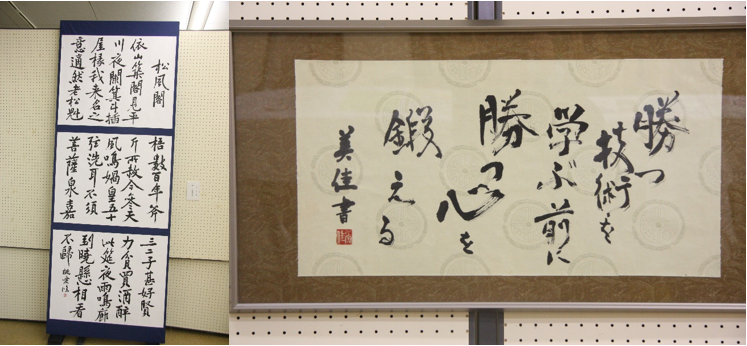 松風閣
依山築閣見平
川夜闌箕斗插
屋椽我来名之
意適然老松魁
梧數百年斧
斤所赦今参天
風鳴媧皇五十
弦洗耳不須
菩薩泉嘉
二三子甚好賢
力貧買酒醉
此筵夜雨鳴廊
到曉懸相看
不歸
勝つ
技術を
学ぶ前に
勝つ心を
鍛える
美佳書